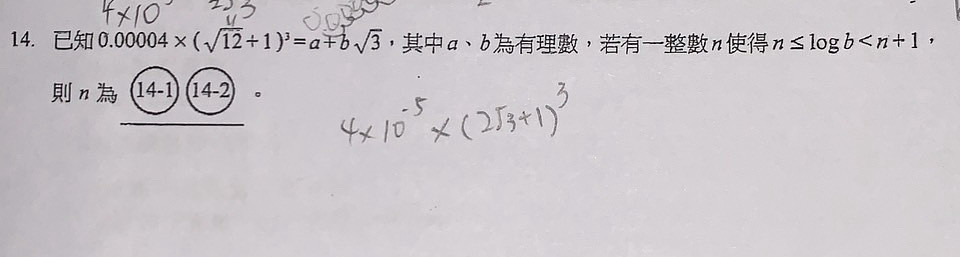 4×10
14. 已知0.00004×(√12+1)³=a+b√3，其中a、b為有理數，若有一整數n使得n≤logb<n+1，
則n為 (14-1) (14-2) 。
4×10⁻⁵×(2√3+1)³